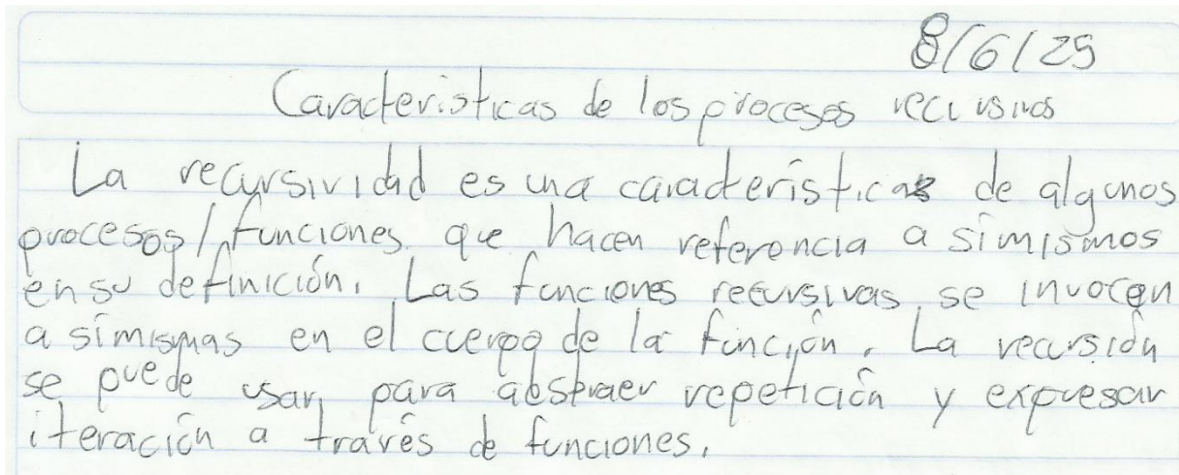 8/6/25
Caracteristicas de los procesos recursivos
La recursividad es una caracteristica de algunos
procesos/funciones que hacen referencia a simismos
en su definición. Las funciones recursivas se invocan
a símismas en el cuerpo de la función. La recursión
se puede usar para abstraer repetición y expresar
iteración a través de funciones.